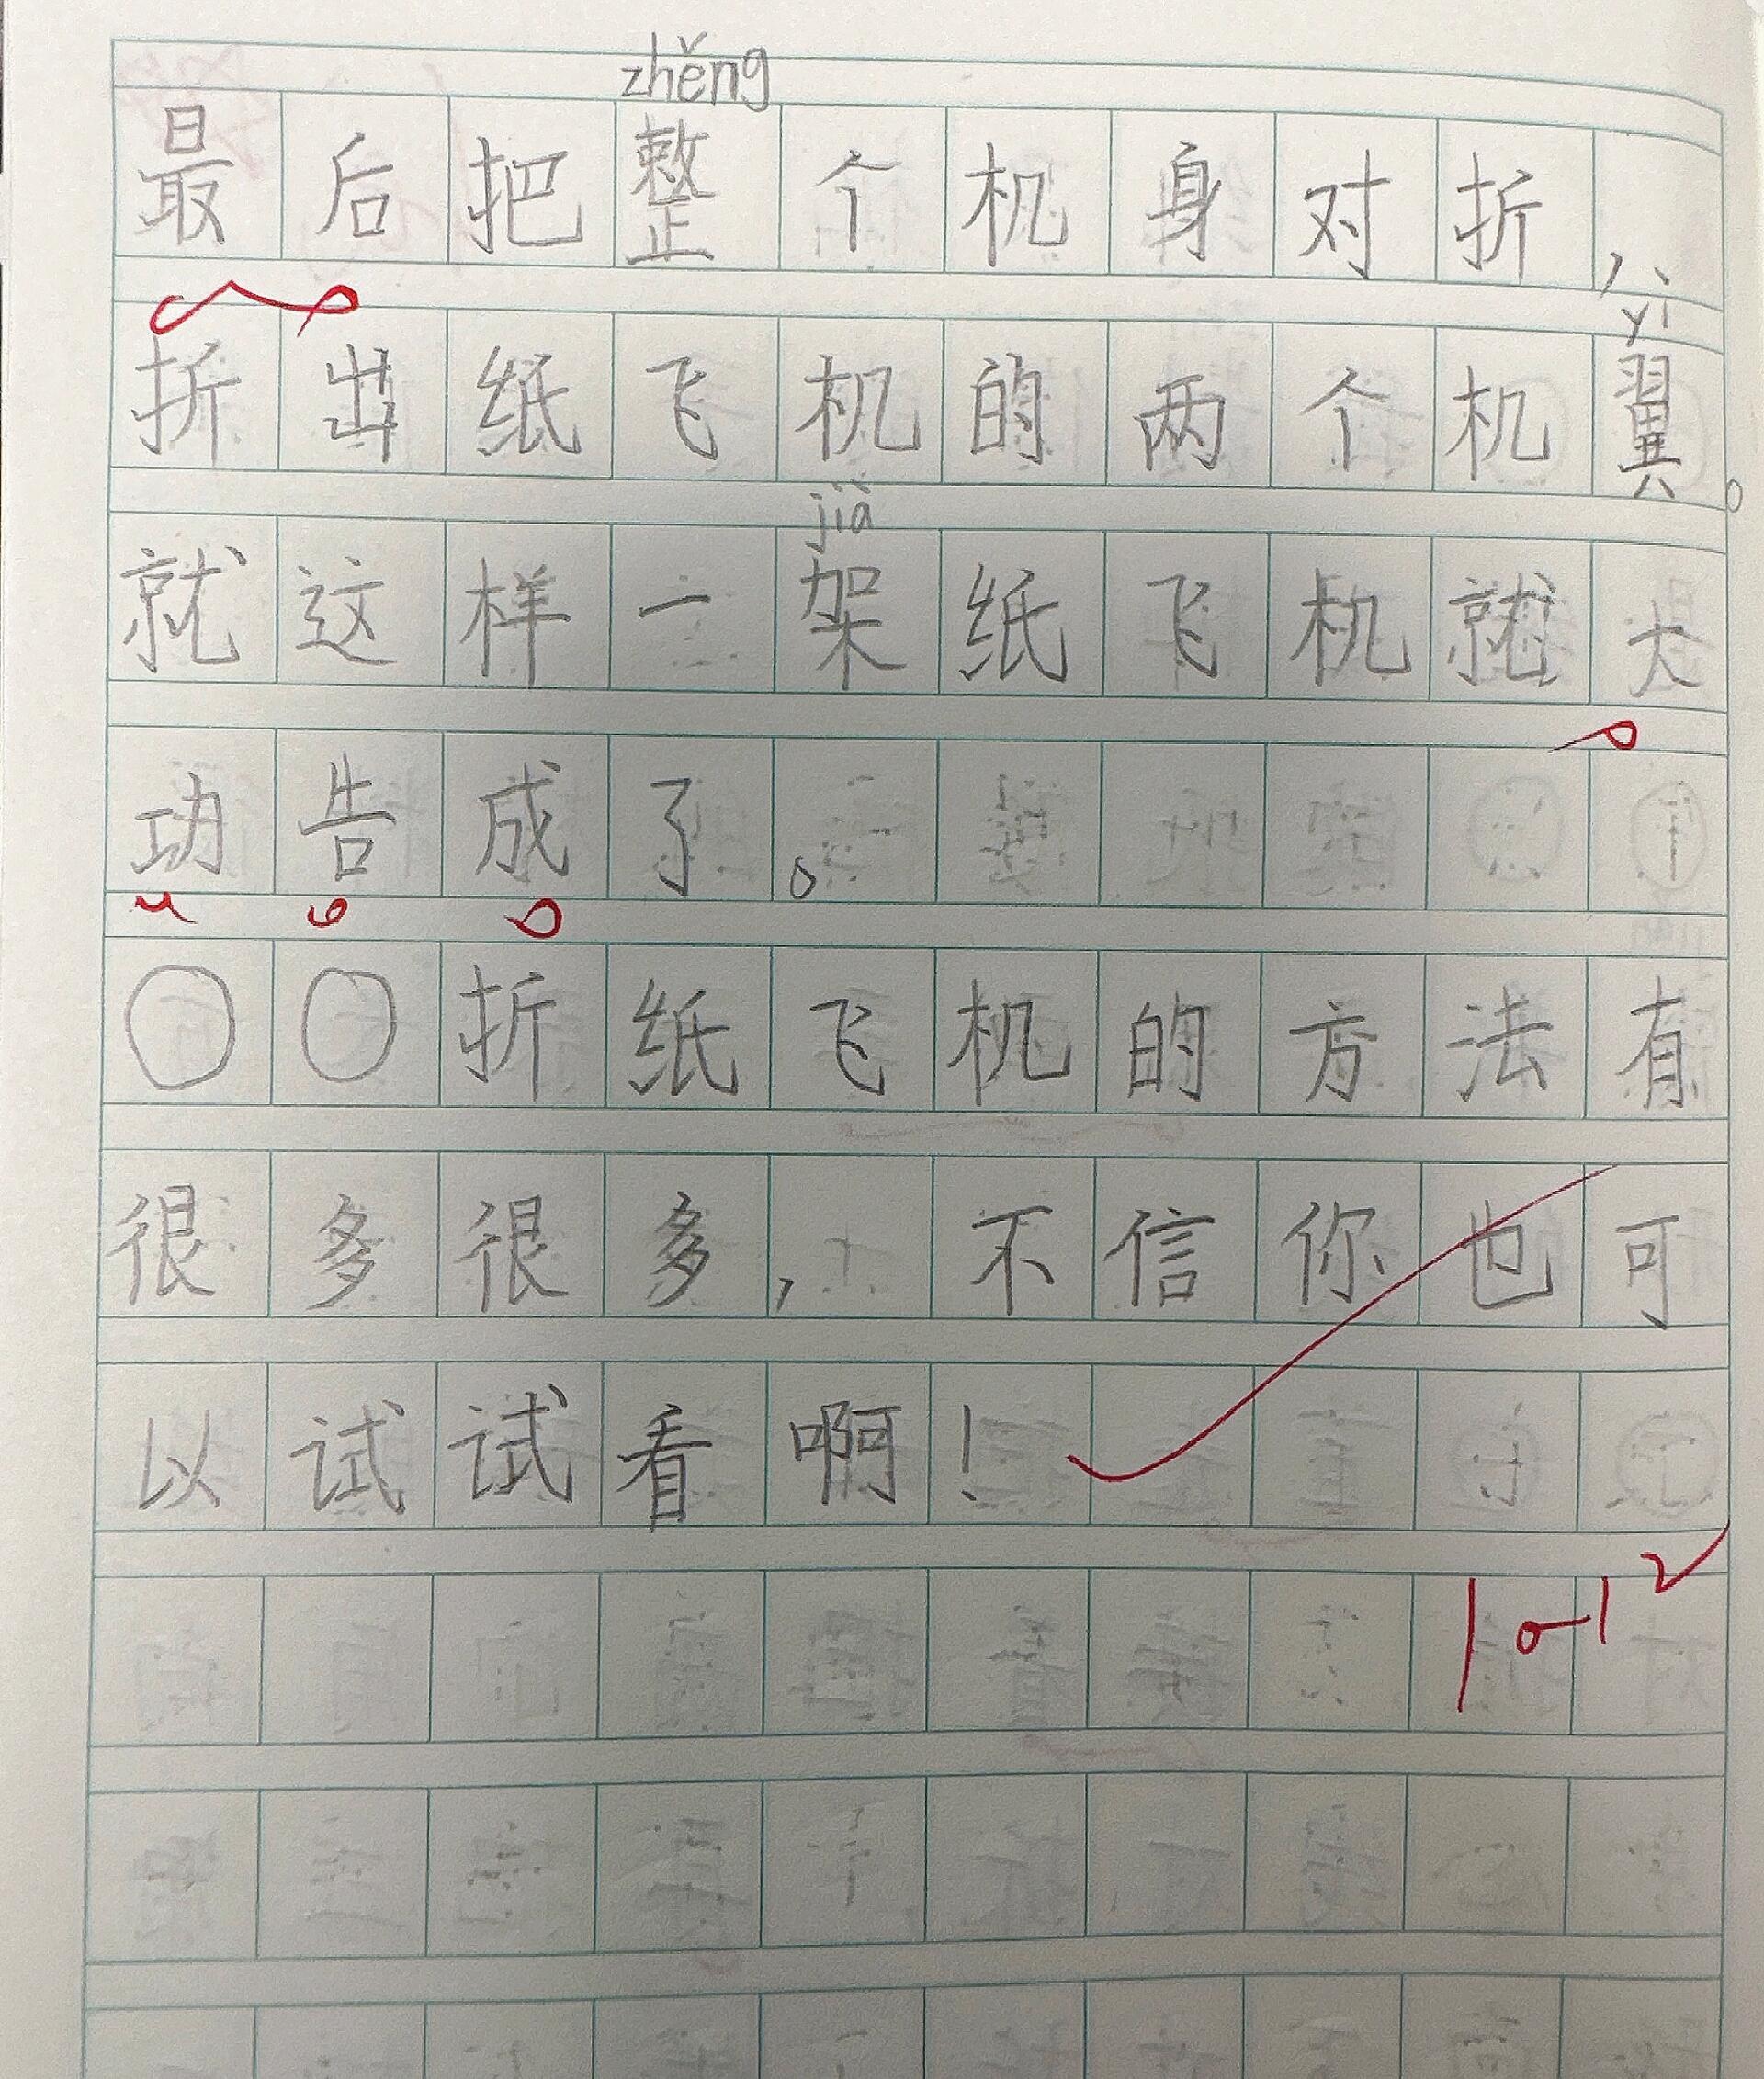 zhěng
最后把整个机身对折，
yì
折出纸飞机的两个机翼。
jià
就这样一架纸飞机就大
功告成了。
○○折纸飞机的方法有
很多很多，不信你也可
以试试看啊！
10-12